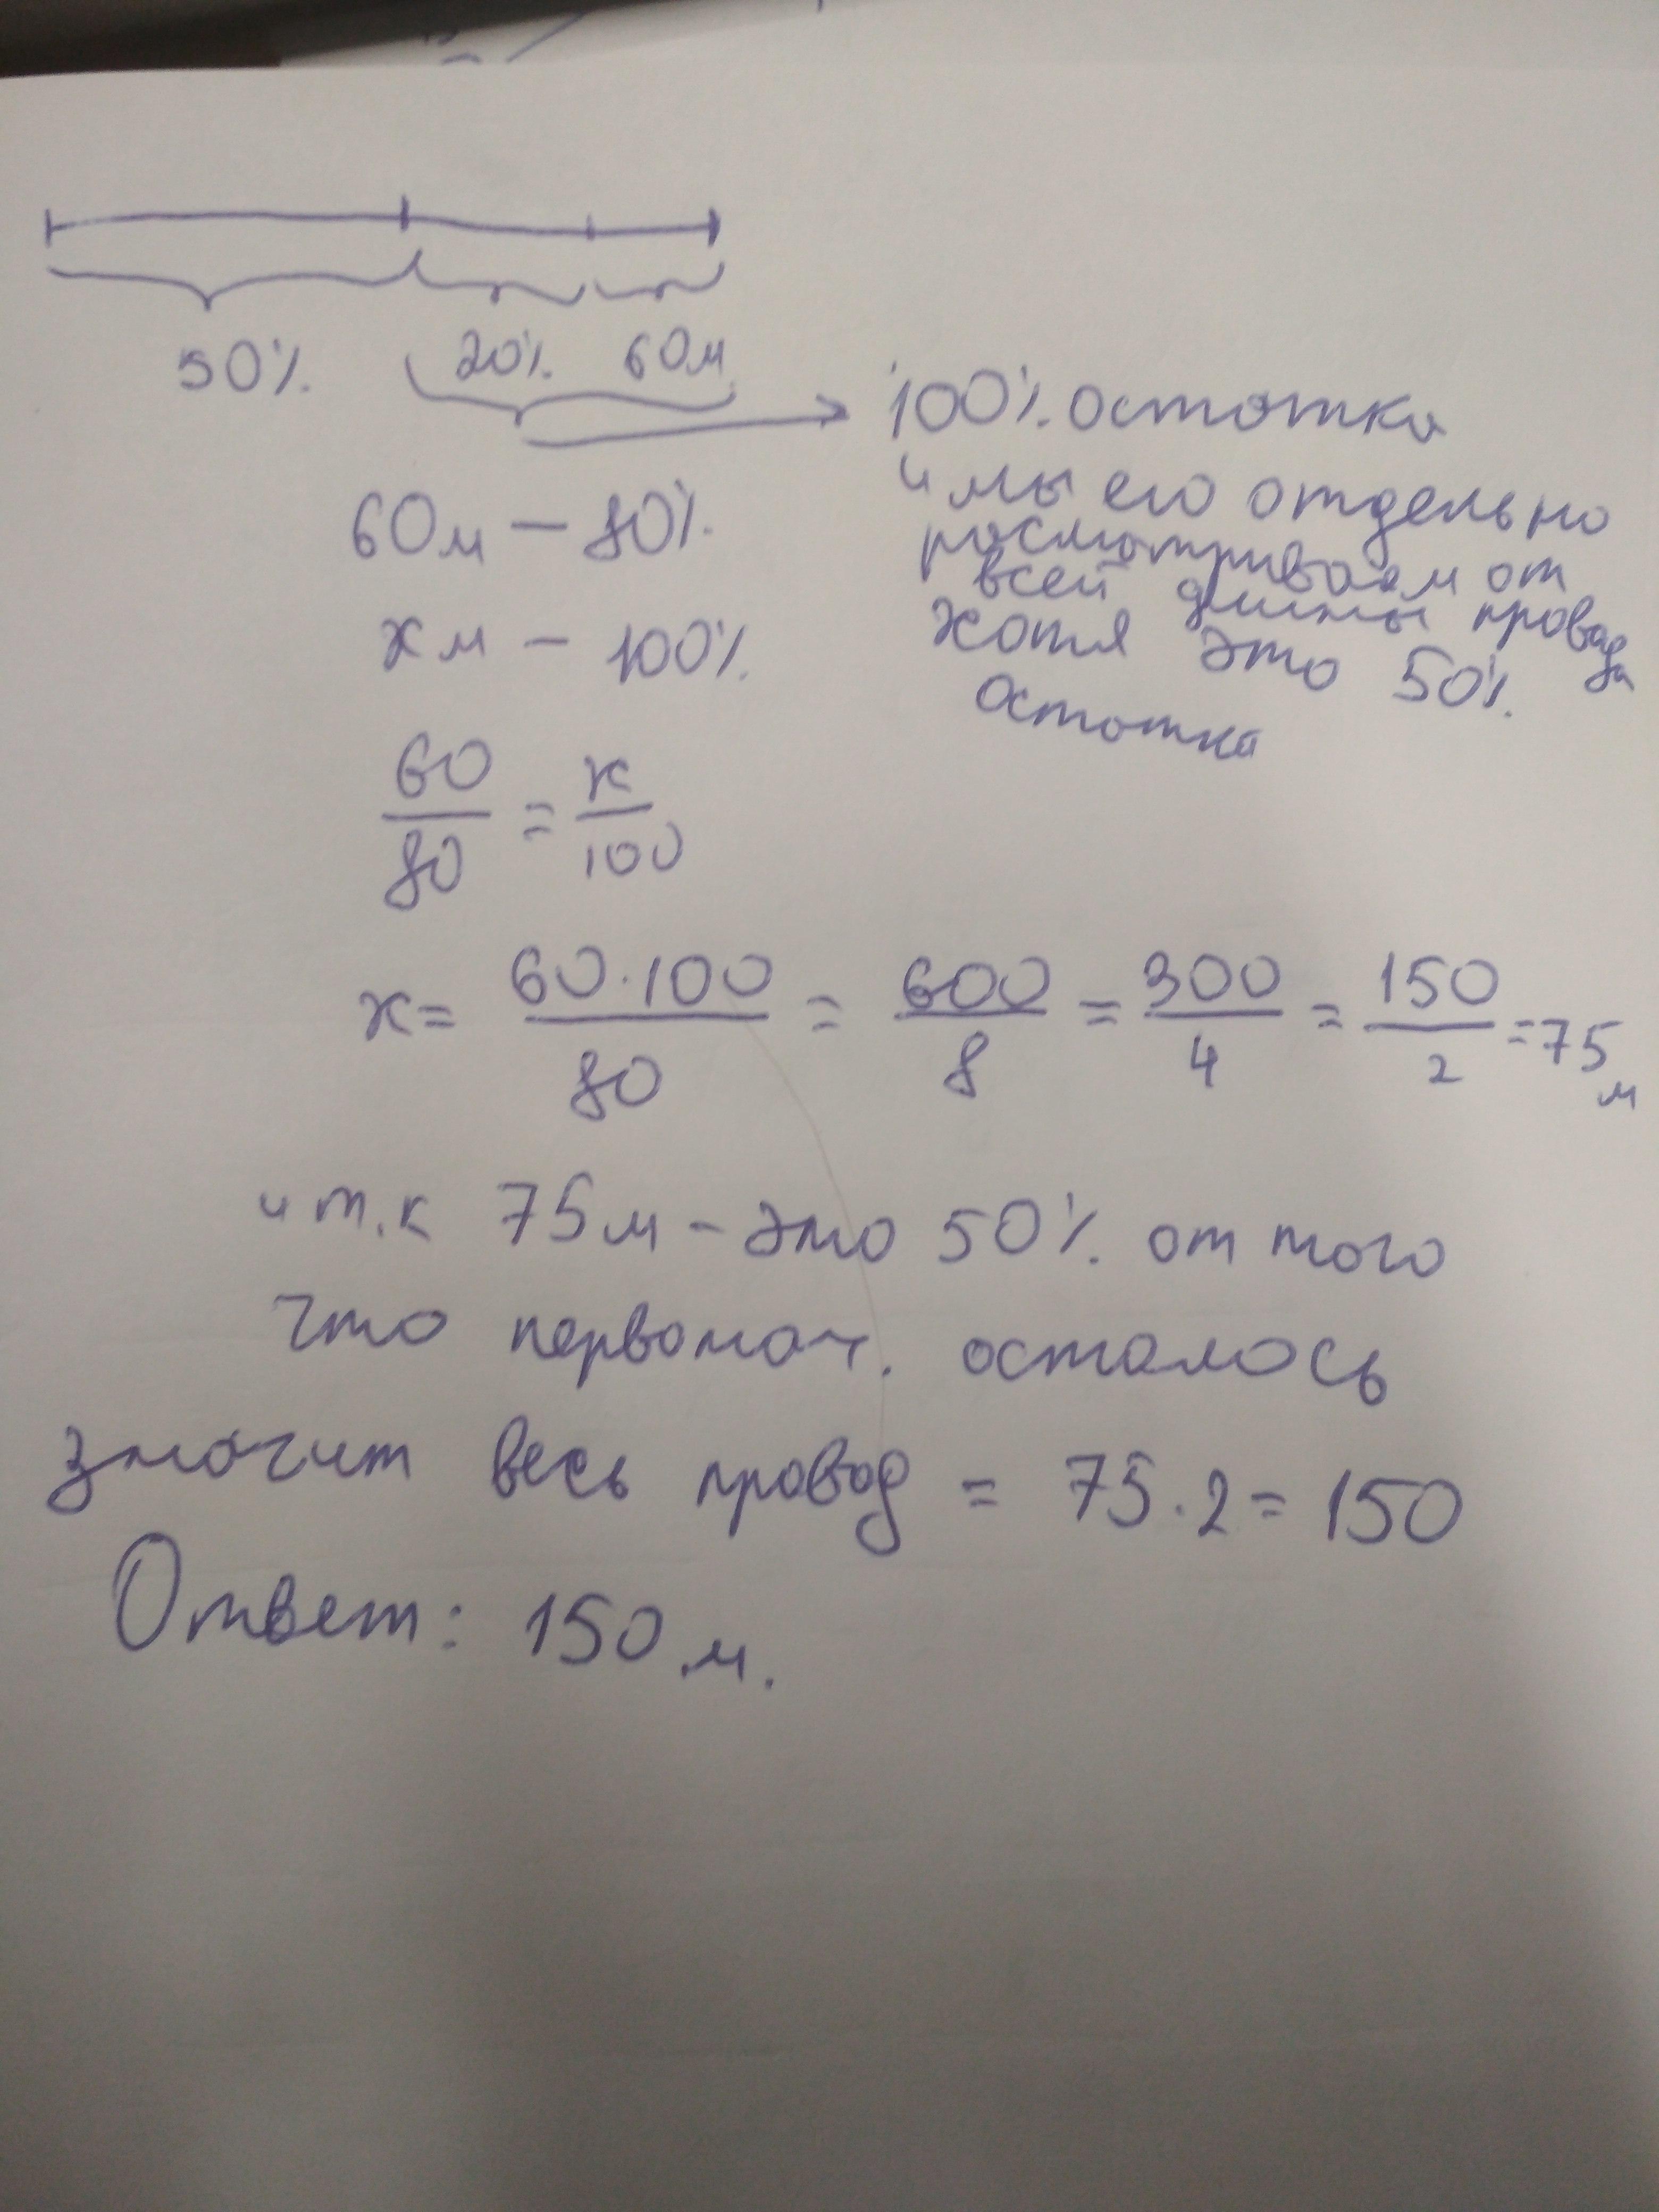 50% 20% 60м
100% остатка
и мы его отдельно
60м – 80%
росматриваем от
всей длины провода
хм – 100%
хотя это 50%
остатка
60/80 = x/100
x = 60·100/80 = 600/8 = 300/4 = 150/2 = 75 м
и т.к 75м – это 50% от того
что первонач. осталось
значит весь провод = 75·2 = 150
Ответ: 150 м.